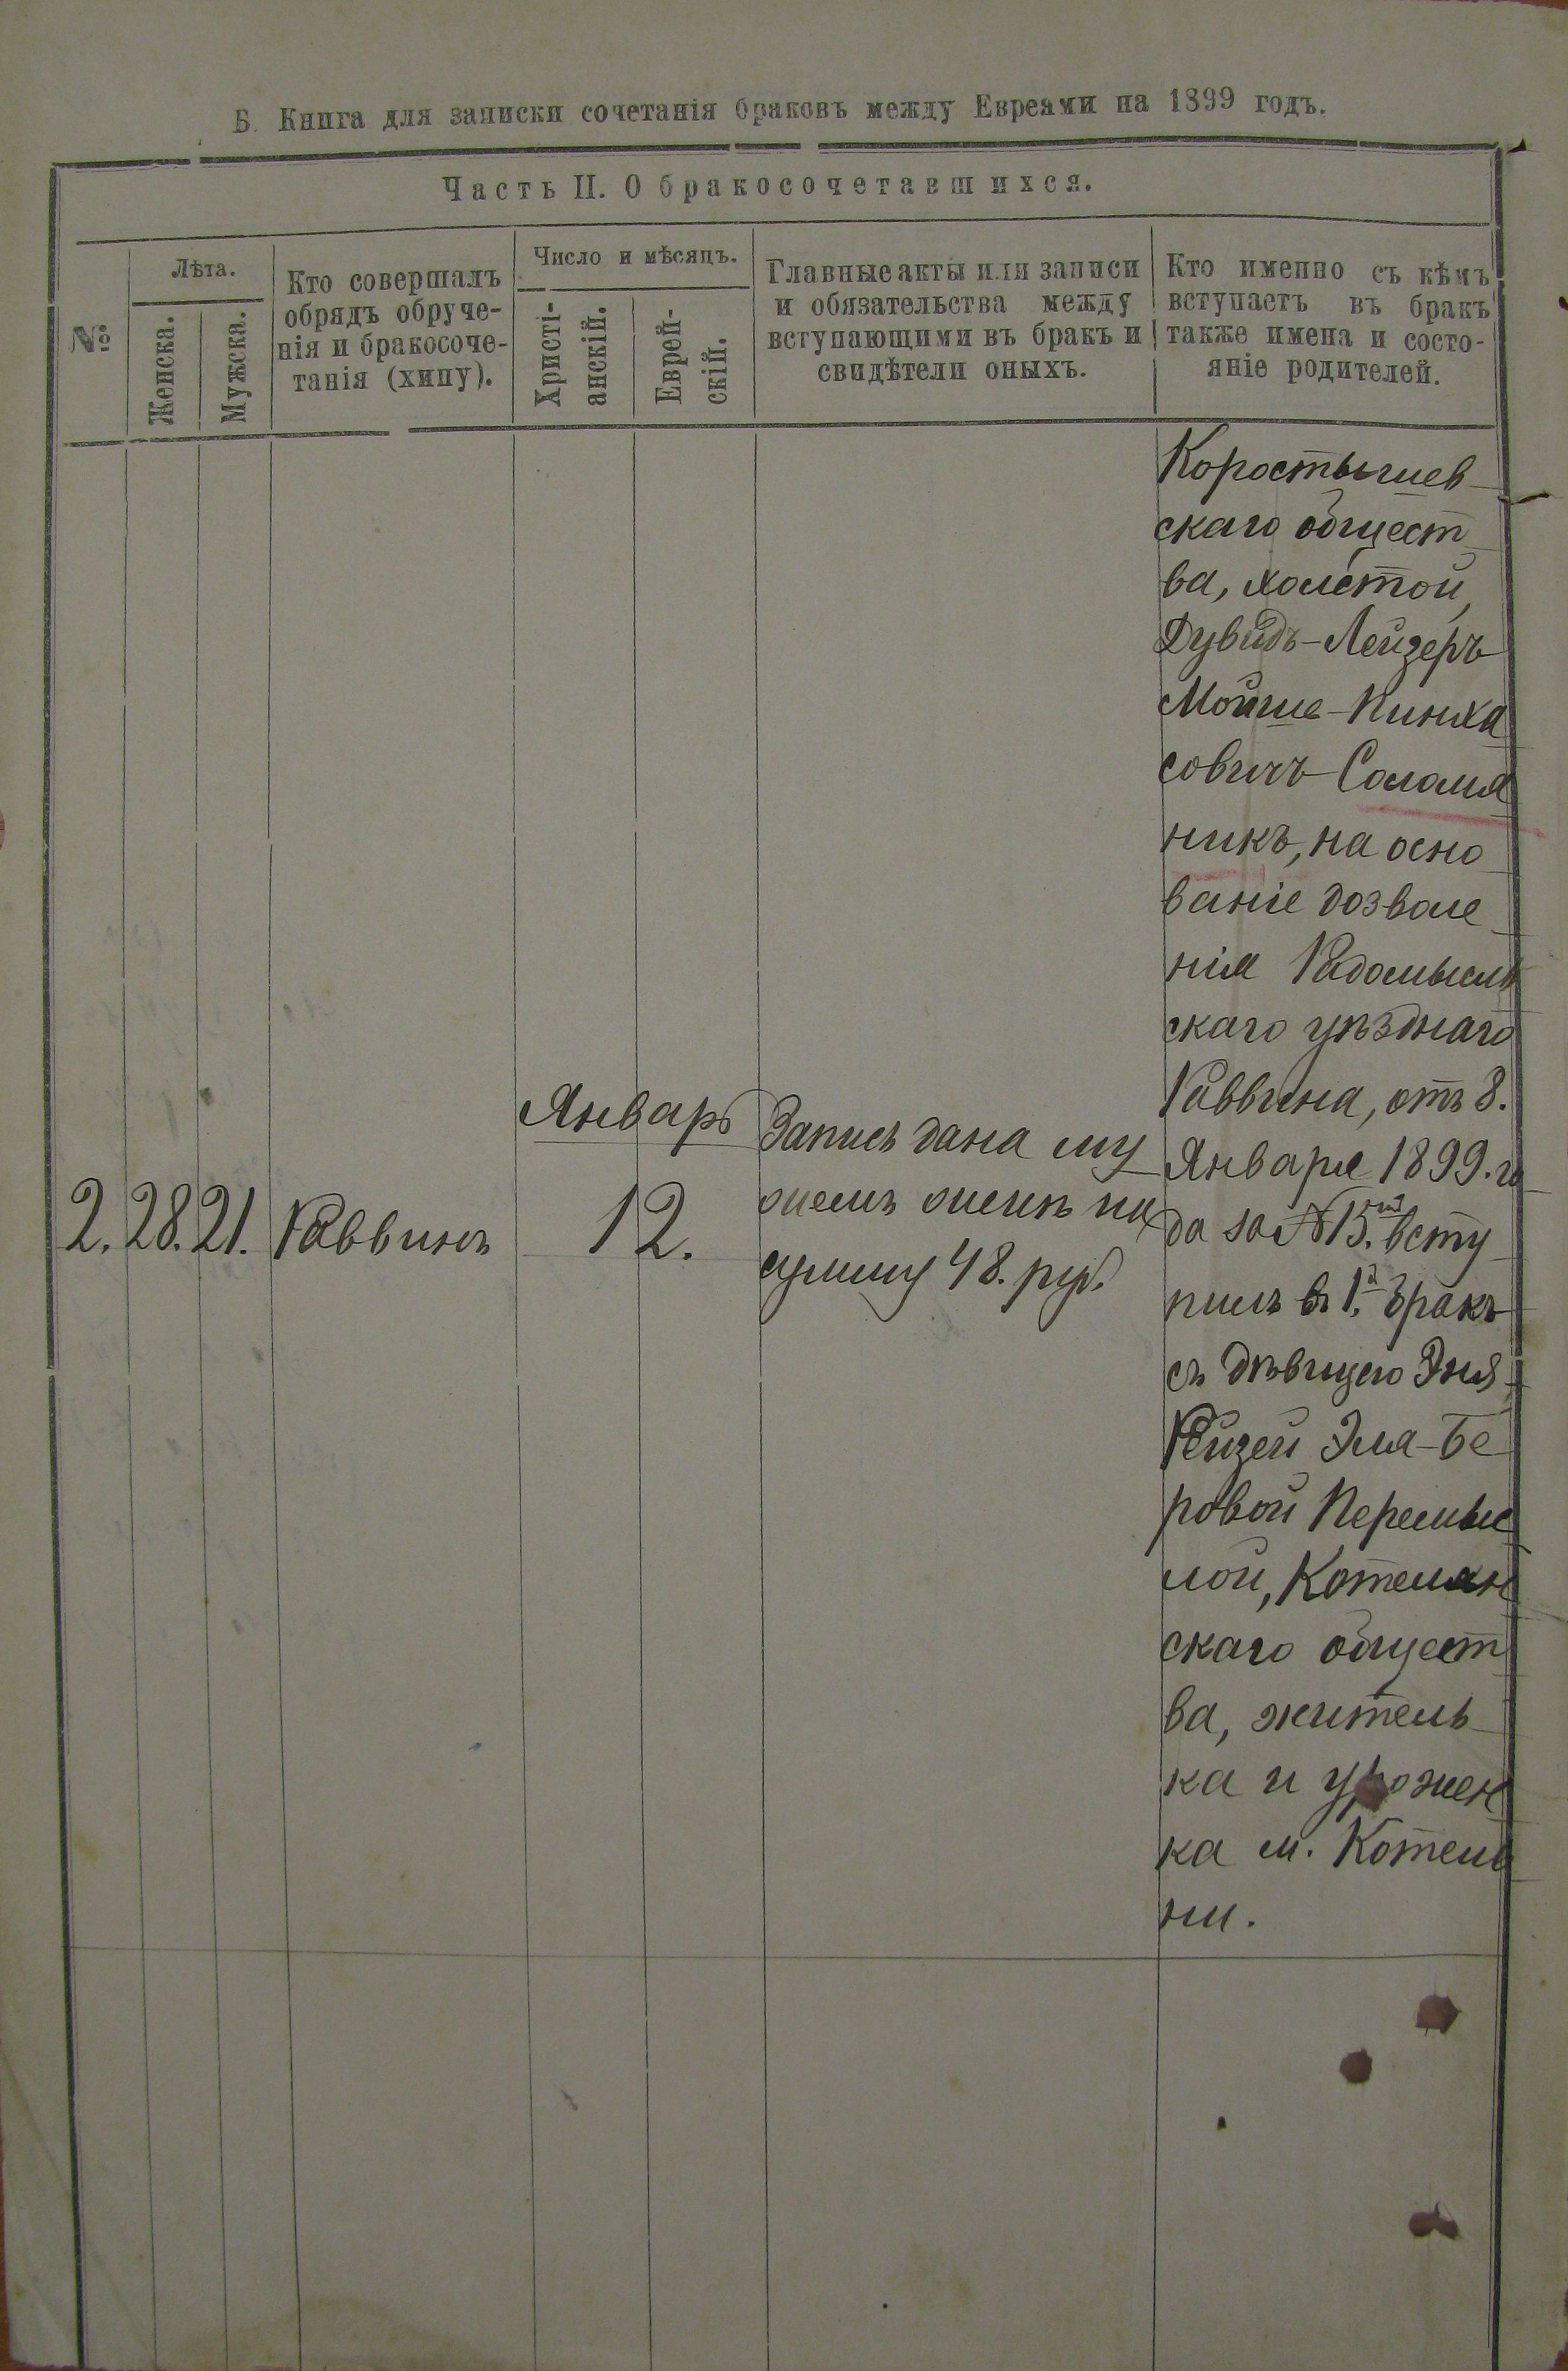 Б. Книга для записки сочетанія браковъ между Евреями на 1899 годъ.
Часть II. О бракосочетавшихся.
№
Лѣта.
Женска.
Мужска.
Кто совершалъ
обрядъ обруче-
нія и бракосоче-
танія (хипу).
Число и мѣсяцъ.
Христі-
анскій.
Еврей-
скій.
Главные акты или записи
и обязательства между
вступающими въ бракъ и
свидѣтели оныхъ.
Кто именно съ кѣмъ
вступаетъ въ бракъ
также имена и состо-
яніе родителей.
2. 28. 21. Раввинъ
Январь
12.
Запись дана му
жемъ женѣ на
сумму 48. руб.
Коростышев
скаго общест
ва, холостой,
Дувидъ-Лейзеръ
Мойше-Пинха
совичъ Соломя
никъ, на осно
ваніе дозволе
нія Радомысль
скаго уѣзднаго
Раввина, отъ 8.
Января 1899. го
да за № 15. всту
пилъ въ 1.й бракъ
съ дѣвицею Эня
Рейзей Эля-Бе
ровой Перемыс
лой, Котельян
скаго общест
ва, житель
ка и урожен
ка м. Котель
ни.